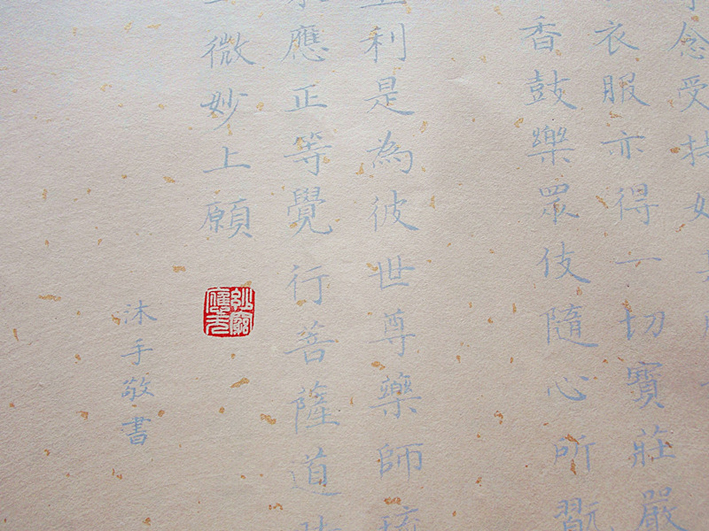 念受持如其所
衣服亦得一切寶莊嚴
香鼓樂眾伎隨心所翫
利是為彼世尊藥師琉
應正等覺行菩薩道時
微妙上願
沐手敬書